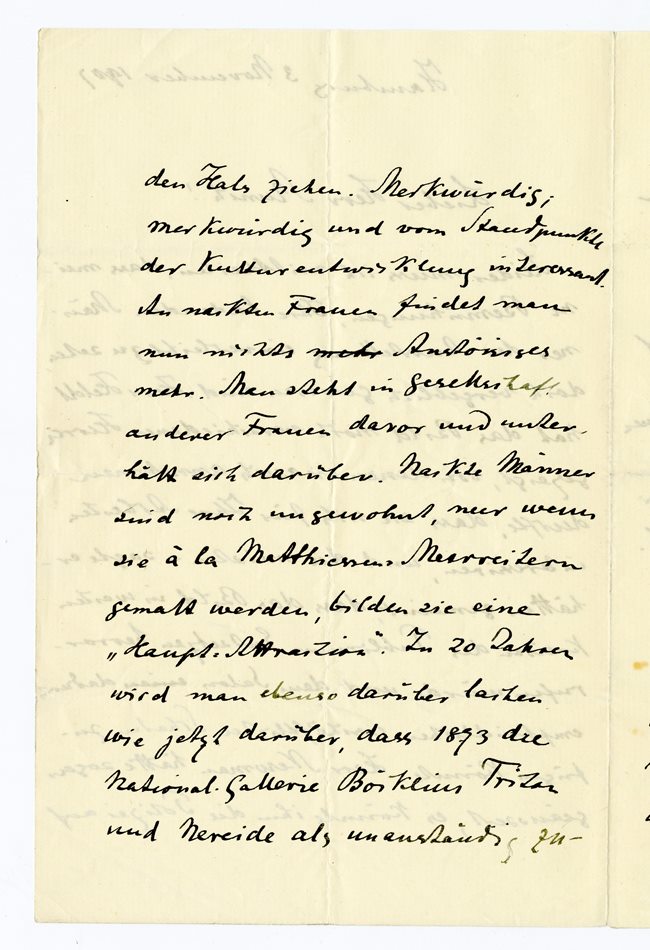 den Hals ziehen. Merkwürdig,
merkwürdig und vom Standpunkte
der Kulturentwicklung interessant.
An nackten Frauen findet man
nun nichts mehr Anstössiges
mehr. Man steht in Gesellschaft
anderer Frauen davor und unter-
hält sich darüber. Nackte Männer
sind noch ungewohnt, nur wenn
sie à la Matthiessens Meerreitern
gemalt werden, bilden sie eine
„Haupt-Attraction". In 20 Jahren
wird man ebenso darüber lachen
wie jetzt darüber, dass 1873 die
National-Gallerie Böcklins Triton
und Nereide als unanständig zu-